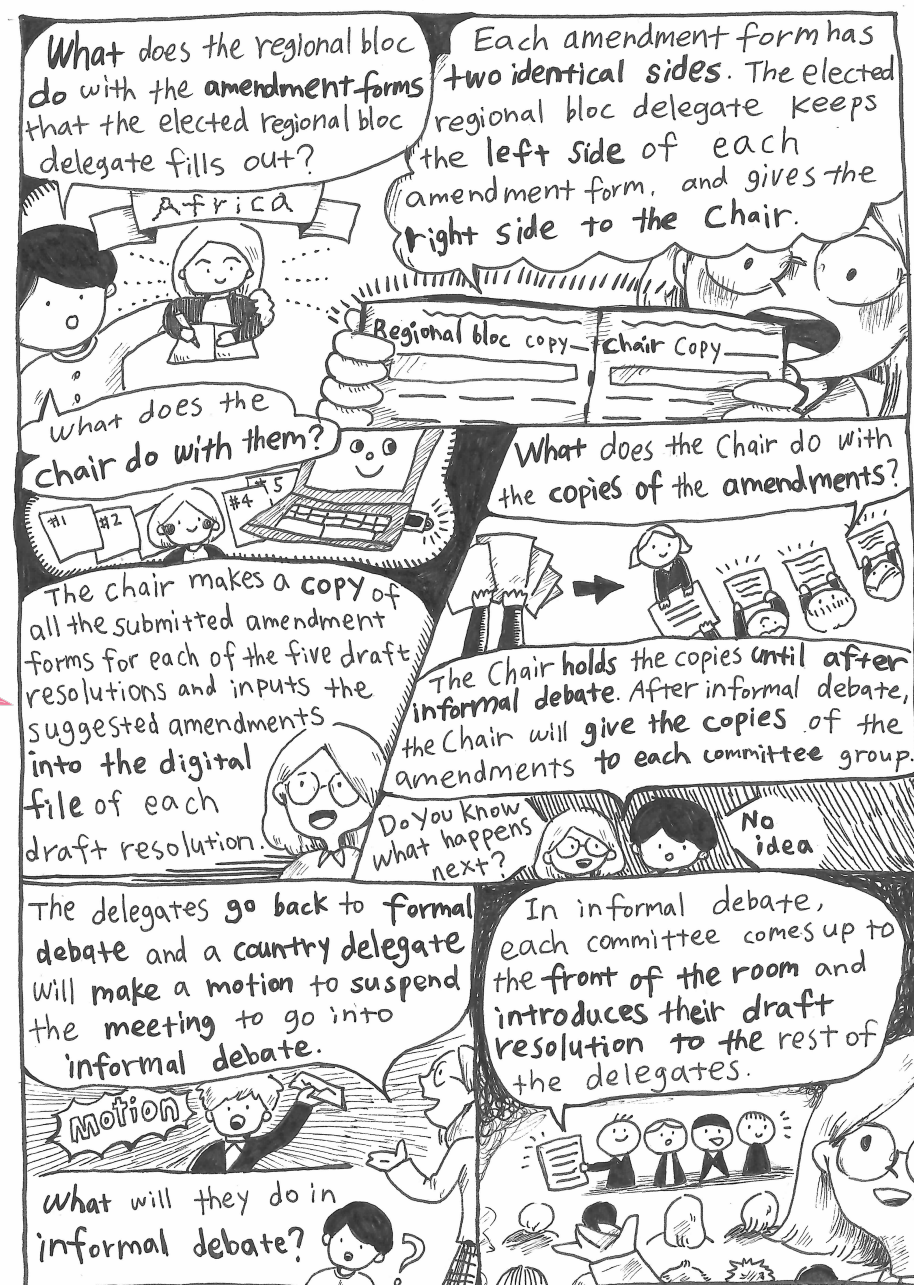 What does the regional bloc
do with the amendment forms
that the elected regional bloc
delegate fills out?
Each amendment form has
two identical sides. The elected
regional bloc delegate keeps
the left side of each
amendment form, and gives the
right side to the Chair.
Africa
Regional bloc copy
Chair Copy
What does the
chair do with them?
#1
#2
#4
#5
What does the Chair do with
the copies of the amendments?
The Chair makes a copy of
all the submitted amendment
forms for each of the five draft
resolutions and inputs the
suggested amendments
into the digital
file of each
draft resolution.
The Chair holds the copies until after
informal debate. After informal debate,
the Chair will give the copies of the
amendments to each committee group.
Do you know
what happens
next?
No
idea
The delegates go back to formal
debate and a country delegate
will make a motion to suspend
the meeting to go into
informal debate.
Motion
What will they do in
informal debate?
?
In informal debate,
each committee comes up to
the front of the room and
introduces their draft
resolution to the rest of
the delegates.